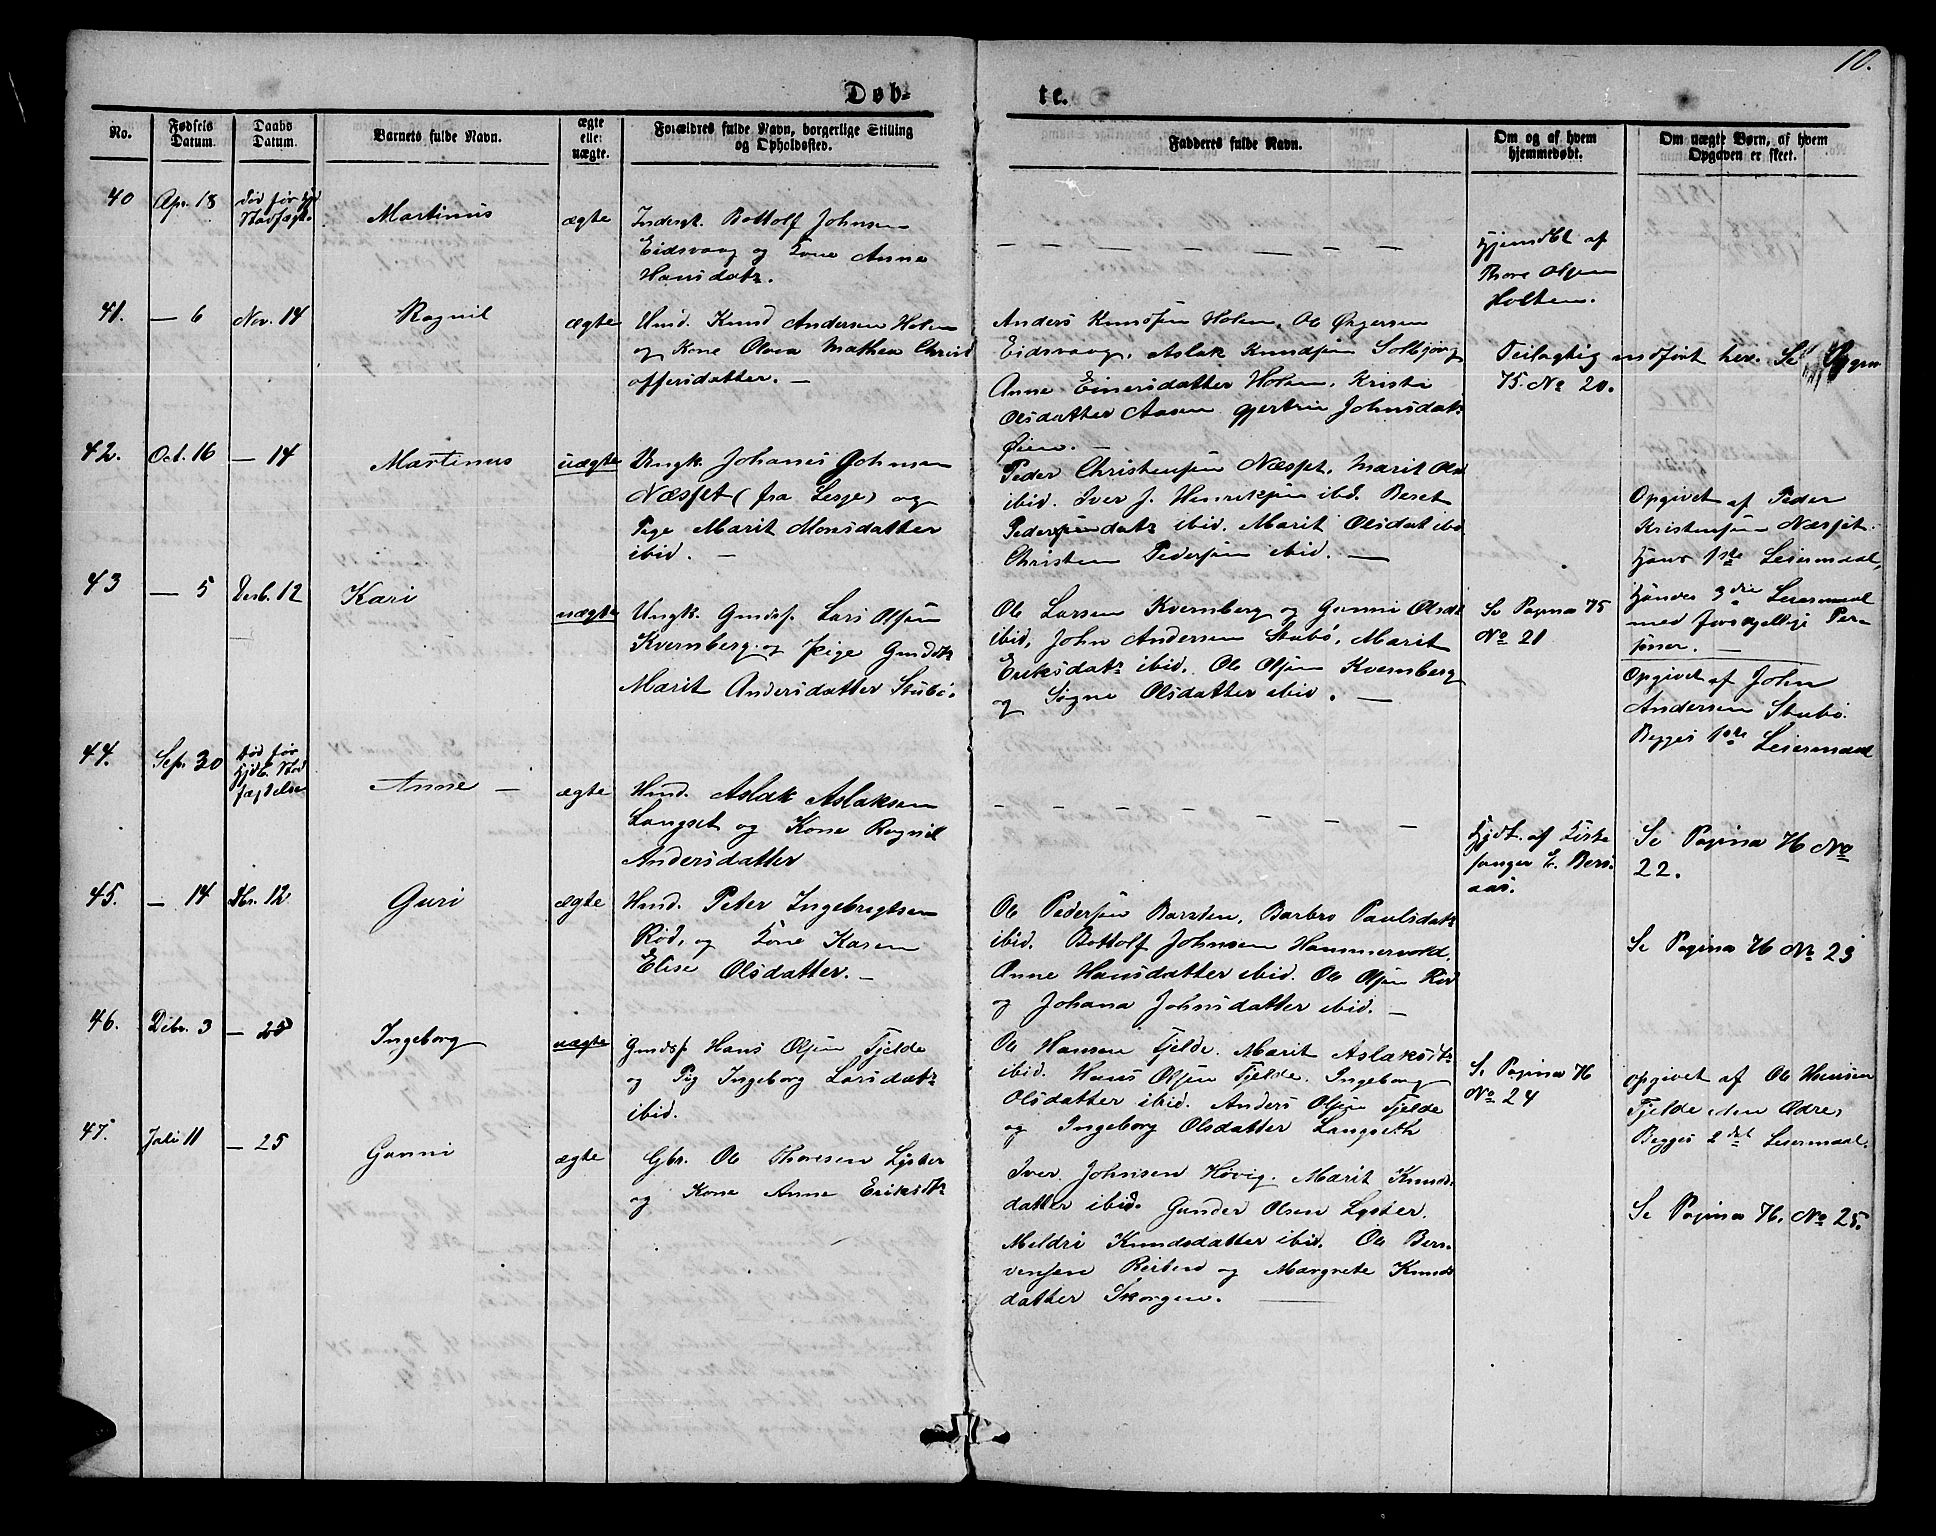 10.
Døb-
te.
No.
Fødsels Datum.
Daabs Datum.
Barnets fulde Navn.
ægte eller uægte.
Forældres fulde Navn, borgerlige Stilling og Opholdssted.
Fadderes fulde Navn.
Om og af hvem hjemmedøbt.
Om uægte Børn, af hvem Opgaven er skeet.
40
Apr. 18
død før
Stadfæst
Martinus
ægte
Inderst. Bottolf Johnsen
Eidsvaag og Kone Anne
Hansdatr.
Hjemdbt af
Olsen
Holten.
41.
— 6
Nov. 14
Ragnil
ægte
Hmd. Knud Andersen Holen
og Kone Olava Mathea Christ
offersdatter. —
Anders Knudsen Holen, Ole
Eidsvaag, Aslak Knudsen Solbjørg
Anne Einersdatter Holen, Kristi
Olsdatter Aasen Gjertrin Johnsdatr
Øien.
Feilagtig indført her. Se
75. No 20.
42.
Oct. 16
— 14
Martinus
uægte
Ungk. Johanes Johnsen
Næsset (fra Lesje) og
Pige Marit Monsdatter
ibid. —
Peder Christensen Næsset, Marit Olsd
ibid. Iver J. Henriksen ibd. Beret
Pedersdatr ibid. Marit Olsdat ibd
Christen Pedersen ibid. —
Opgivet af Peder
Kristensen Næsset.
Hans 1ste Leiermaal,
Hendes 3die Leiermaal
med forskjellige Per-
soner. —
43
— 5
Desb. 12
Kari
uægte
Ungk. Gmdsf. Lars Olsen
Kvernberg og Pige Gmddtr
Marit Andersdatter Stubø.
Ole Larsen Kvernberg og Gunni Olsdt
ibid, John Andersen Stubø, Marit
Eriksdatr ibid. Ole Olsen Kvernberg
og Signe Olsdatter ibid. —
Se Pagina 75
No 21
Opgivet af John
Andersen Stubø.
Begges 1ste Leiermaal
44.
Sep. 30
Død før
Hjdb. Stad
fæstelse
Anne —
ægte
Hmd. Aslak Aslaksen
Langset og Kone Ragnil
Andersdatter
Hjdt. af Kirke
sanger E. Bers
aas.
Se Pagina 76 No
22.
45.
— 14
Dbr. 12
Guri
ægte
Hmd. Peter Ingebrigtsen
Rød, og Kone Karen
Elise Olsdatter. —
Ole Pedersen Barsten, Barbro Paulsdatr
ibid. Bottolf Johnsen Hammervold,
Anne Hansdatter ibid. Ole Olsen Rød
og Johana Johnsdatter ibid. —
Se Pagina 76 No 23
46.
Debr. 3
— 25
Ingeborg
uægte
Gmdsf Hans Olsen Fjelde
og Pig Ingeborg Larsdatr
ibid.
Ole Hansen Fjelde. Marit Aslaksdtr
ibid. Hans Olsen Fjelde, Ingeborg
Olsdatter ibid. Anders Olsen Fjelde
og Ingeborg Olsdatter Langseth
Se Pagina 76
No 24
opgivet af Ole Hansen
Fjelde den Ædre,
Begges 2det Leiermaal.
47.
Juli 11
— 25
Gunni
ægte
Gbr. Ole Thoresen Lyster
og Kone Anne Eriksdtr
Iver Johnsen Høvig. Marit Knuds
datter ibid. Gunder Olsen Lyster,
Meldri Knudsdatter ibid. Ole Bern-
vensen Reiten og Margrete Knuds
datter Skorgen. —
Se Pagina 76. No 25.